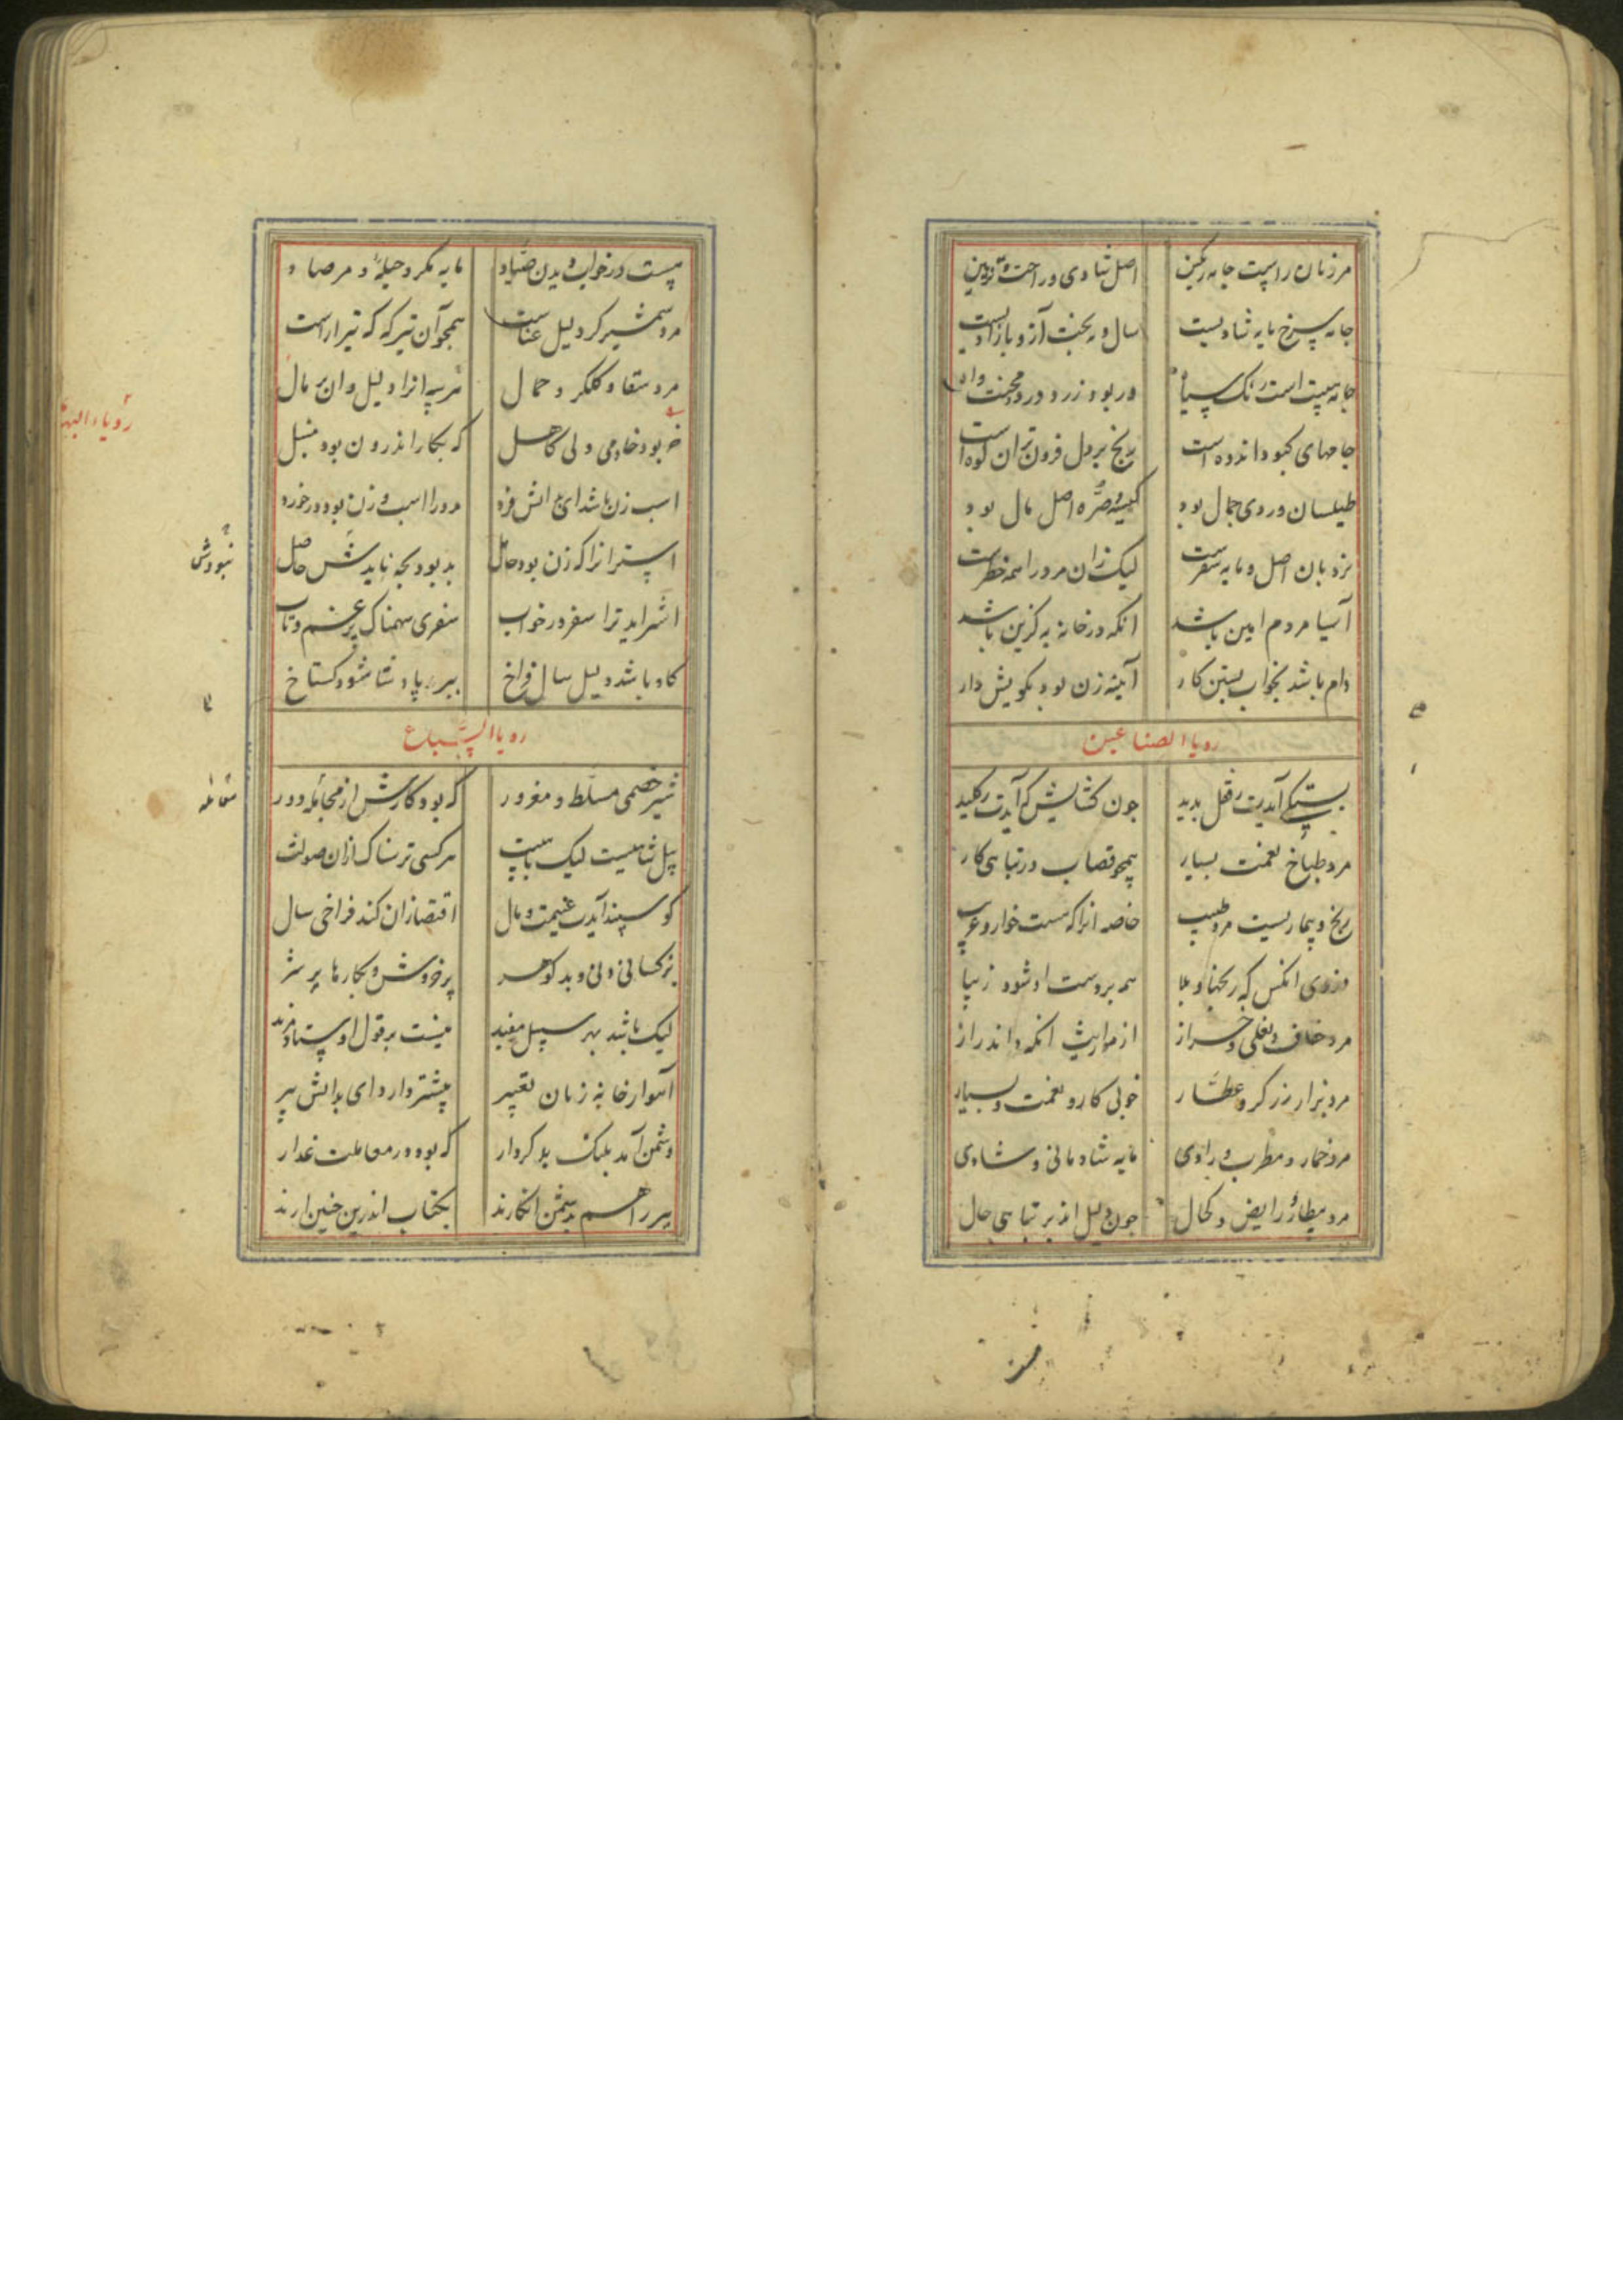 مر زنان راست جامه رنگین اصل شادی و راحت و تزیین
جامه سرخ مایه شادیست سال و مه بخت ازو بازادیست
جامه هست رنک سیاه ور بود زرد درد و محنت واه
جامهای کبود اندوه است رنج بر دل فزون تر از کوه است
طیلسان و ردی جمال بود کیسه و صره اصل مال بود
نردبان اصل و مایه سفرست لیک زان مرد را همه خطرست
آسیا مردم امین باشد انکه در خانه به کزین باشد
دام باشد بخواب بستن کار آینه زن بود نکویش دار
رویا الصناعین
بستکی آیدت ز قفل بدید جون کشایش که آیدت ز کلید
مرد طباخ نعمت بسیار همجو قصاب در تباهی کار
رنج و بیماریست مرد طبیب خاصه انرا که هست خوار و غریب
درزی انکس که رنجها و بلا همه بر دست او شود زیبا
مرد خفاف و نعلی و خراز از مواریث انکه داند راز
مرد بزاز و زرکر و عطار خوبی کار و نعمت بسیار
مرد خمار و مطرب و رادی مایه شادمانی و شادی
مرد بیطار و رایض و کحال جون دلیل اند بر تباهی حال
هست در خواب دیدن صیاد مایه مکر و حیله و مرصاد
مرد شمشیرکر دلیل عناست همجو آن تیرکر که تیر اراست
مرد سقا و کلکر و حمال هر سه انرا دلیل دان بر مال
رؤیاء البهائم
خر بود خادمی ولی کاهل که بکار اندرون بود منبل
اسب زن باشد ای بدانش فرد مرد را اسب و زن بود در خورد
استر انرا که زن بود حامل بد بود بجه نایدش حاصل
نبودش
اشتر اید ترا سفر در خواب سفری سهمناک بر غم و تاب
کاو باشد دلیل سال فراخ ببر پادشا شود کستاخ
رویا السباع
شیر خصمی مسلط و مغرور که بود کارش از مجامله دور
پیل شاهیست لیک باهیبت هر کسی ترسناک ازان صولت
کوسپند آیدت غنیمت و مال اقتضا زان کند فراخی سال
بز کسانی دنی و بد کوهر بر خروش و بکارها بر شر
لیک باشد بهر سبیل مفید
آهو از خانه زنان تعبیر بیشتر دارد ای بدانش پیر
دشمن آمد بلنک بد کردار که بود در معاملت غدار
ببر را هم بدشمن انکارند بکتاب اندرین جنین ارند